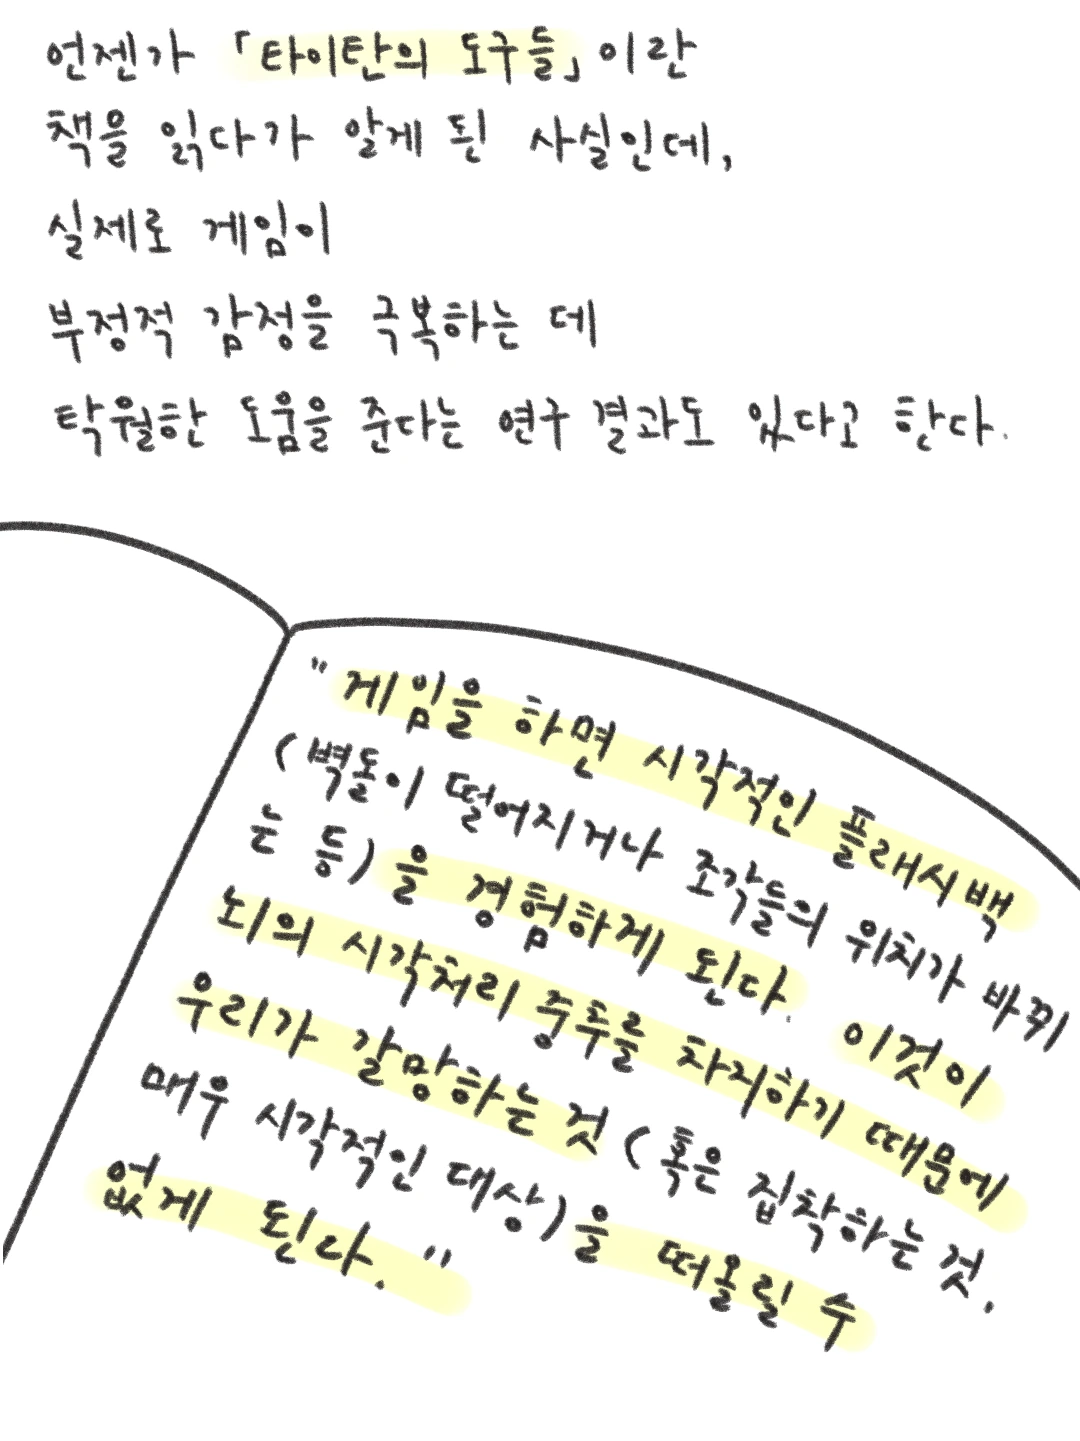 언젠가 「타이탄의 도구들」이란
책을 읽다가 알게 된 사실인데,
실제로 게임이
부정적 감정을 극복하는 데
탁월한 도움을 준다는 연구 결과도 있다고 한다.
"게임을 하면 시각적인 플래시백
(벽돌이 떨어지거나 조각들의 위치가 바뀌
는 등)을 경험하게 된다. 이것이
뇌의 시각처리 중추를 차지하기 때문에
우리가 갈망하는 것 (혹은 집착하는 것,
매우 시각적인 대상)을 떠올릴 수
없게 된다."